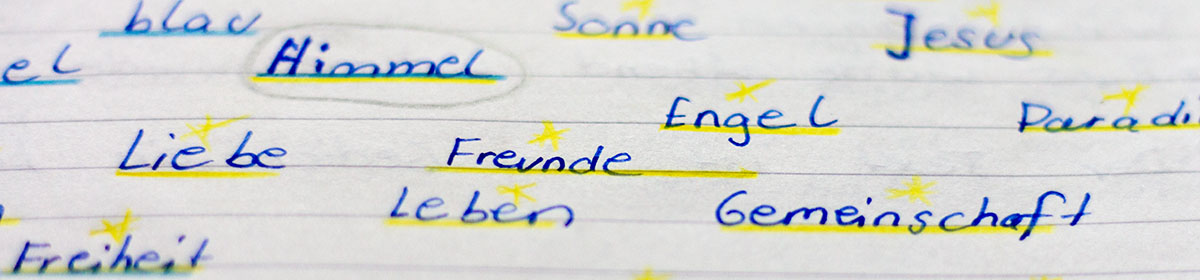 blau Sonne Jesus
el Himmel
Engel Paradi
Liebe Freunde
Leben Gemeinschaft
Freiheit